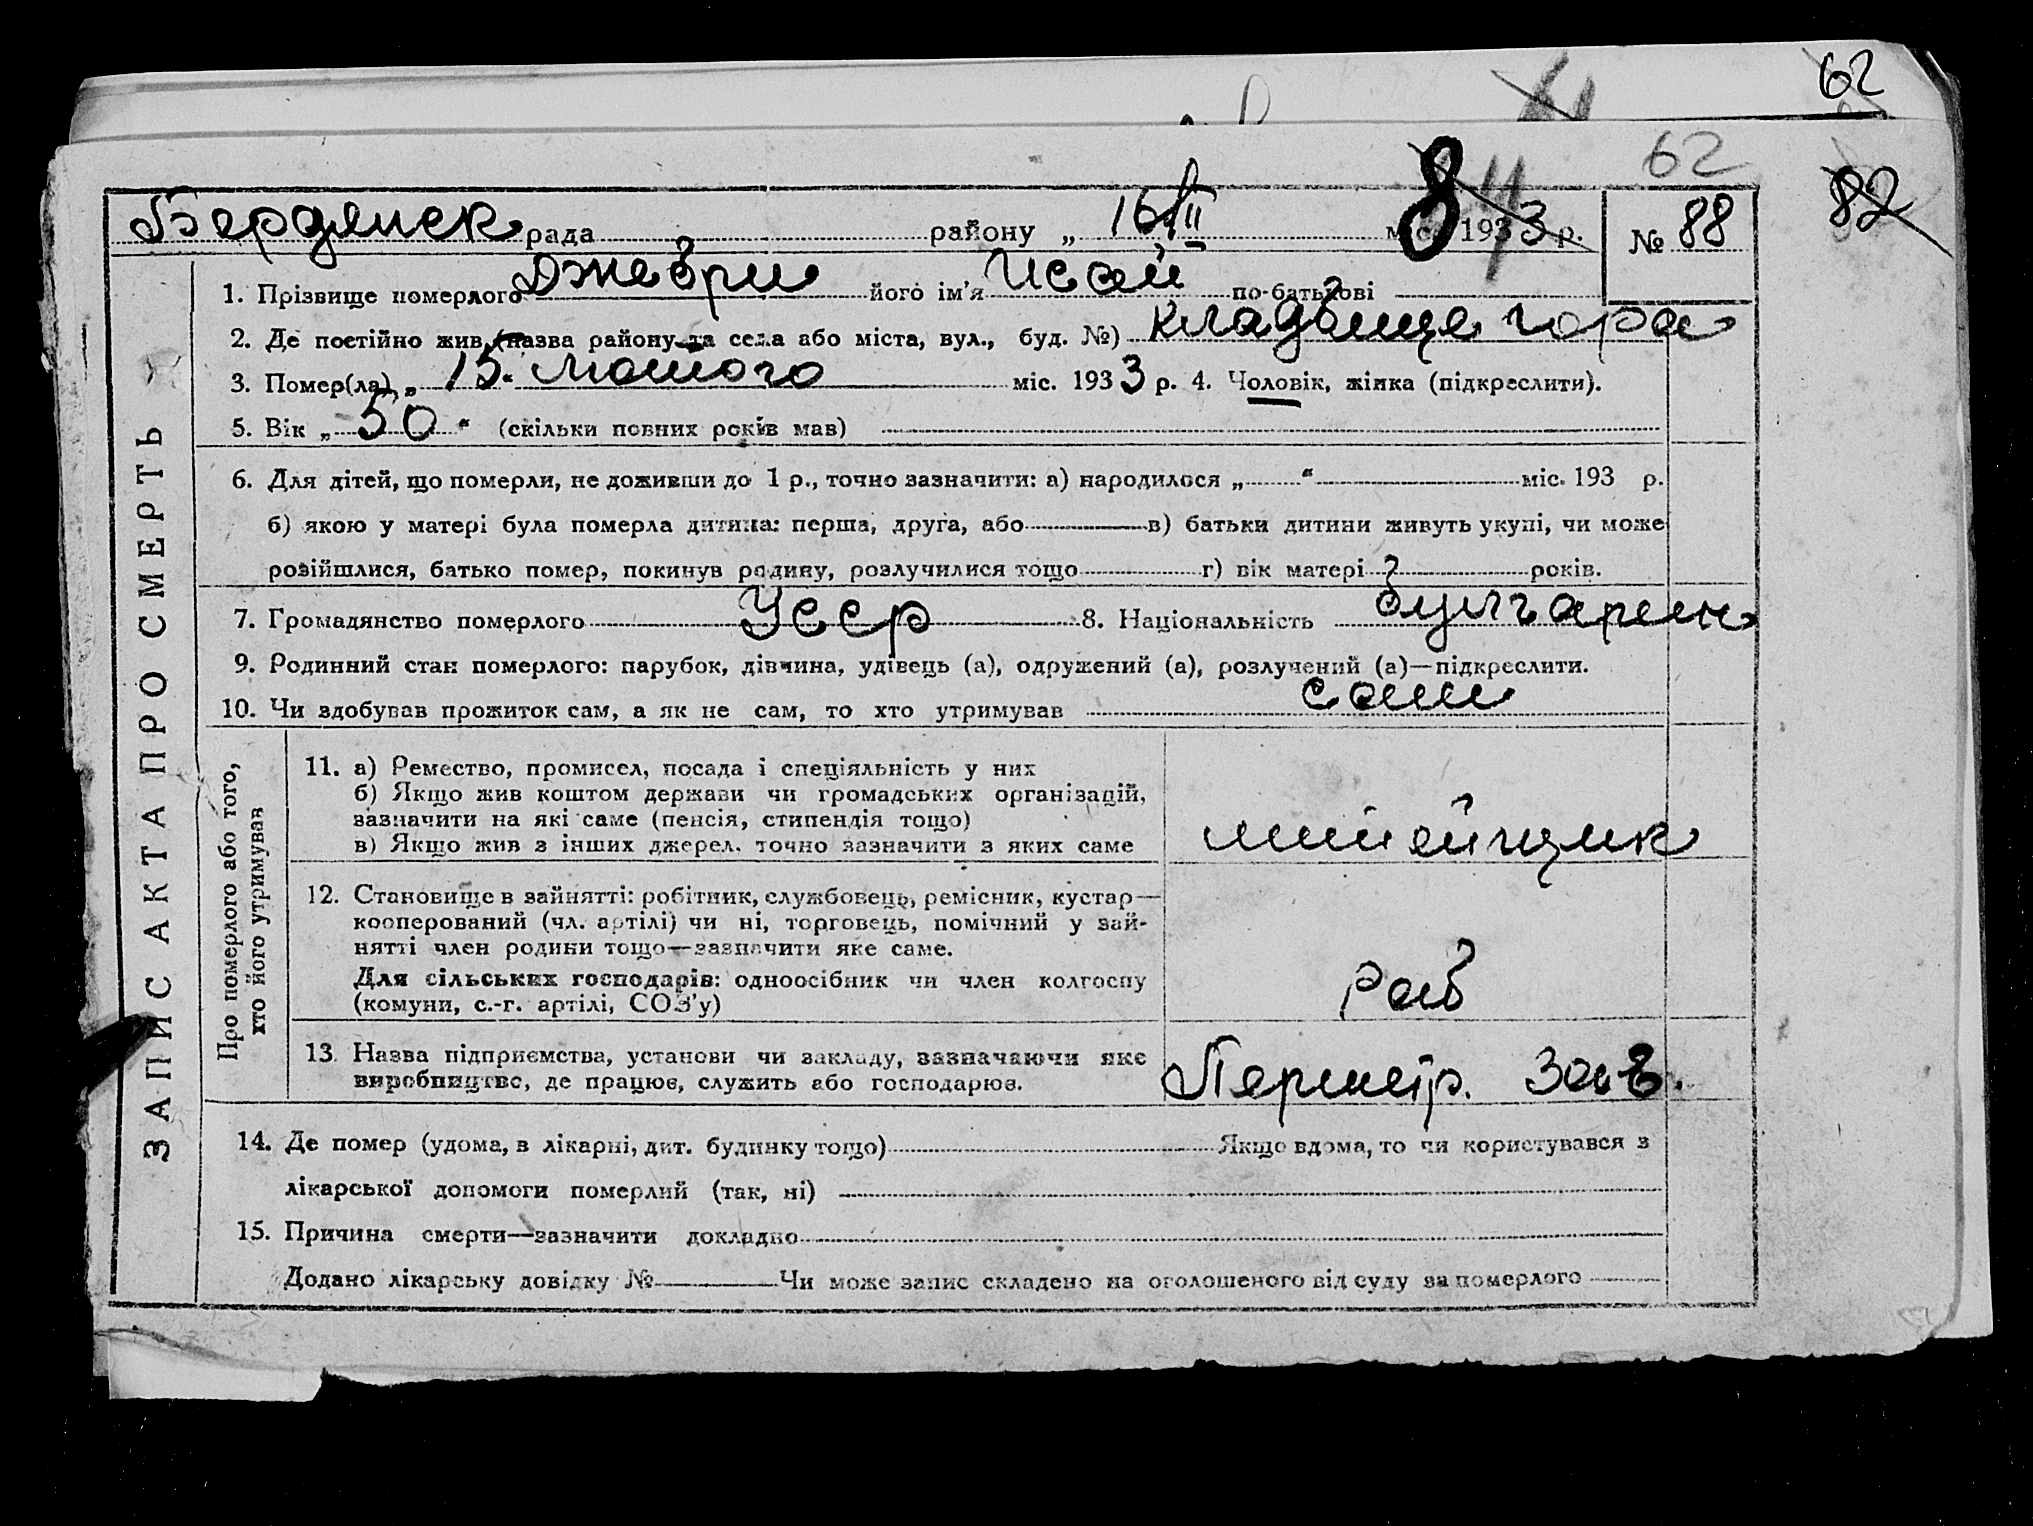 62
62
8 11
82
Бердянск рада района „ 16/II міс. 1933 р. № 88
ЗАПИС АКТА ПРО СМЕРТЬ
1. Прізвище померлого Джебри його ім'я Исай по-батькові
2. Де постійно жив (назва району та села або міста, вул., буд. №) кладбище гора
3. Помер(ла) „ 15 “ Лютого міс. 1933 р. 4. Чоловік, жінка (підкреслити).
5. Вік „ 50 “ (скільки повних років мав)
6. Для дітей, що померли, не доживши до 1 р., точно зазначити: а) народилося „ “ міс. 193 р.
б) якою у матері була померла дитина: перша, друга, або в) батьки дитини живуть укупі, чи може
розійшлися, батько помер, покинув родину, розлучилися тощо г) вік матері років.
7. Громадянство померлого Усср 8. Національність булгарин
9. Родинний стан померлого: парубок, дівчина, удівець (а), одружений (а), розлучений (а)—підкреслити.
10. Чи здобував прожиток сам, а як не сам, то хто утримував сам
Про померлого або того,
хто його утримував
11. а) Ремество, промисел, посада і спеціяльність у них
б) Якщо жив коштом держави чи громадських організацій,
зазначити на які саме (пенсія, стипендія тощо)
в) Якщо жив з інших джерел, точно зазначити з яких саме
12. Становище в зайнятті: робітник, службовець, ремісник, кустар—
кооперований (чл. артілі) чи ні, торговець, помічний у зай-
нятті член родини тощо—зазначити яке саме.
Для сільських господарів: одноосібник чи член колгоспу
(комуни, с.-г. артілі, СОЗ'у)
Раб
13. Назва підприємства, установи чи закладу, зазначаючи яке
виробництво, де працює, служить або господарює.
Першетр. Зав.
14. Де помер (удома, в лікарні, дит. будинку тощо) Якщо вдома, то чи користувався з
лікарської допомоги померлий (так, ні)
15. Причина смерти—зазначити докладно
Додано лікарську довідку № Чи може запис складено на оголошеного від суду за померлого